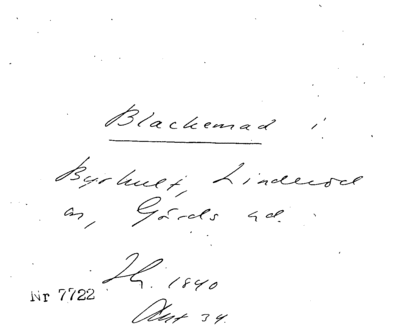 Blackemad i
Byrhult, Linderöd
sn, Gärds hd.
Hg. 1840
Nr 7722
Akt 34.